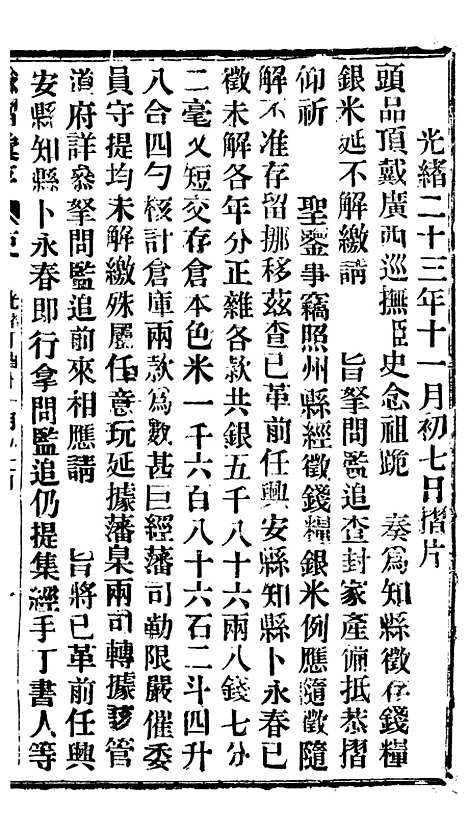 光緒二十三年十一月初七日摺片
頭品頂戴廣西巡撫臣史念祖跪 奏爲知縣徵存錢糧
銀米延不解繳請 旨拏問監追查封家產備抵恭摺
仰祈 聖鑒事竊照州縣經徵錢糧銀米例應隨徵隨
解不准存留挪移茲查已革前任興安縣知縣卜永春已
徵未解各年分正雜各款共銀五千八十六兩八錢七分
二毫又短交存倉本色米一千六百八十六石二斗四升
八合四勺核計倉庫兩款爲數甚巨經藩司勒限嚴催委
員守提均未解繳殊屬任意玩延據藩臬兩司轉據該管
道府詳叅拏問監追前來相應請 旨將已革前任興
安縣知縣卜永春即行拿問監追仍提集經手丁書人等